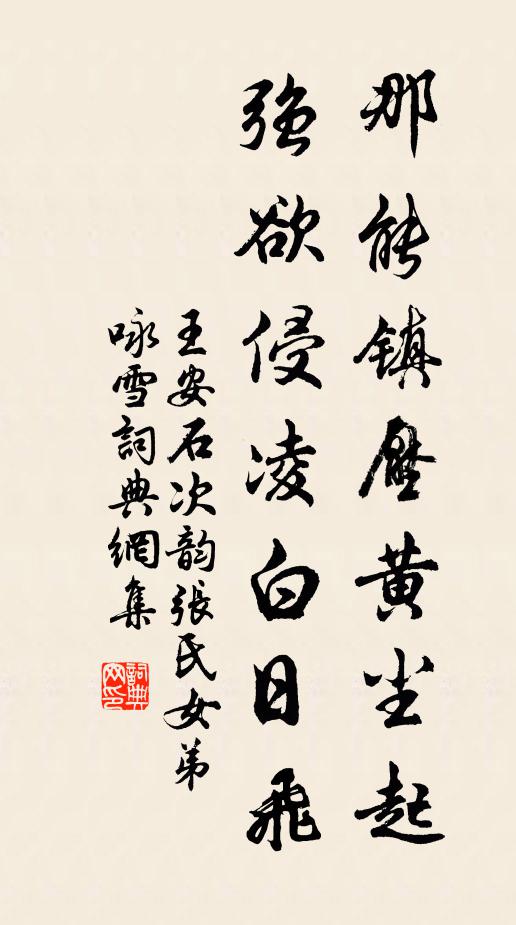 那能鎮壓黄尘起
強欲侵凌白日飛
王安石次韵張氏女弟
咏雪詞典網集
詞典网印